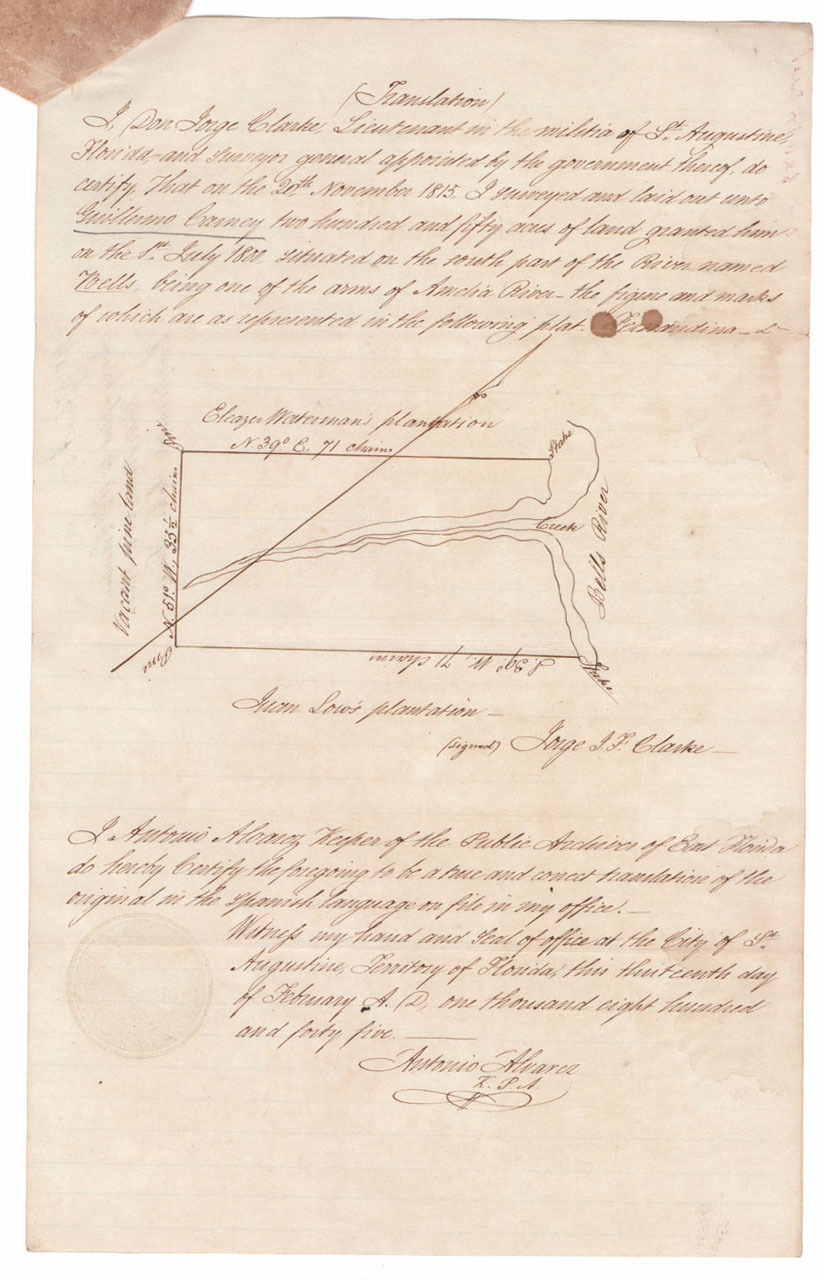 (Translation)
I, Don Jorge Clarke, Lieutenant in the militia of St. Augustine,
Florida, and surveyor general appointed by the government thereof, do
certify That on the 20th November 1815, I surveyed and laid out unto
Guillermo Carney two hundred and fifty acres of land granted him
on the 1st. July 1800 situated on the south part of the River named
Bells, being one of the arms of Amelia River - the figure and marks
of which are as represented in the following plat. Fernandina - &
Eleazer Waterman's plantation
N. 39° E. 71 chains
Stake
Vacant pine land
N. 51° W. 35½ chains
Creek
Bells River
Pine
S. 39° W. 71 chains
Juan Low's plantation -
(signed) Jorge J. F. Clarke -
I Antonio Alvarez Keeper of the Public Archives of East Florida
do hereby Certify the foregoing to be a true and correct translation of the
original in the Spanish Language on file in my office. -
Witness my hand and seal of office at the City of St.
Augustine, Territory of Florida, this thirteenth day
of February A. D, one thousand eight hundred
and forty five. -
Antonio Alvarez
K. P. A.